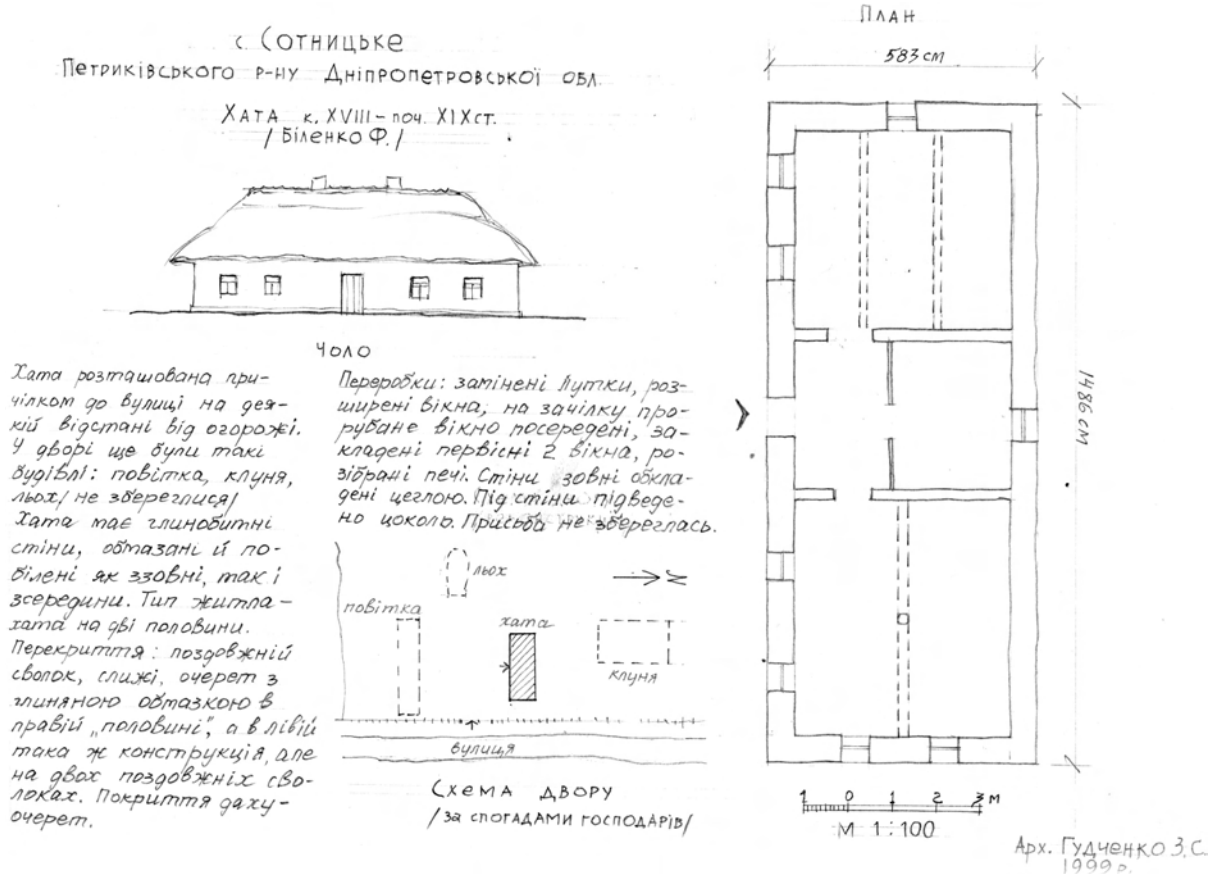 с. Сотницьке
Петриківського р-ну Дніпропетровської обл.
Хата к. XVIII – поч. XIX ст.
/ Біленко Ф. /
Чоло
Хата розташована при-
чілком до вулиці на дея-
кій відстані від огорожі.
У дворі ще були такі
будівлі: повітка, клуня,
льох / не збереглися /
Хата має глинобитні
стіни, обмазані й по-
білені як ззовні, так і
зсередини. Тип житла –
хата на дві половини.
Перекриття: поздовжній
сволок, слижі, очерет з
глиняною обмазкою в
правій „половині", а в лівій
така ж конструкція, але
на двох поздовжніх сво-
локах. Покриття даху –
очерет.
Переробки: замінені лутки, роз-
ширені вікна, на зачілку про-
рубане вікно посередені, за-
кладені первісні 2 вікна, ро-
зібрані печі. Стіни зовні обкла-
дені цеглою. Під стіни підведе-
но цоколь. Присьба не збереглась.
льох
N
повітка
хата
клуня
вулиця
Схема двору
/ за спогадами господарів /
План
583 см
1486 см
1 0 1 2 3 м
М 1:100
Арх. Гудченко З.С.
1999 р.